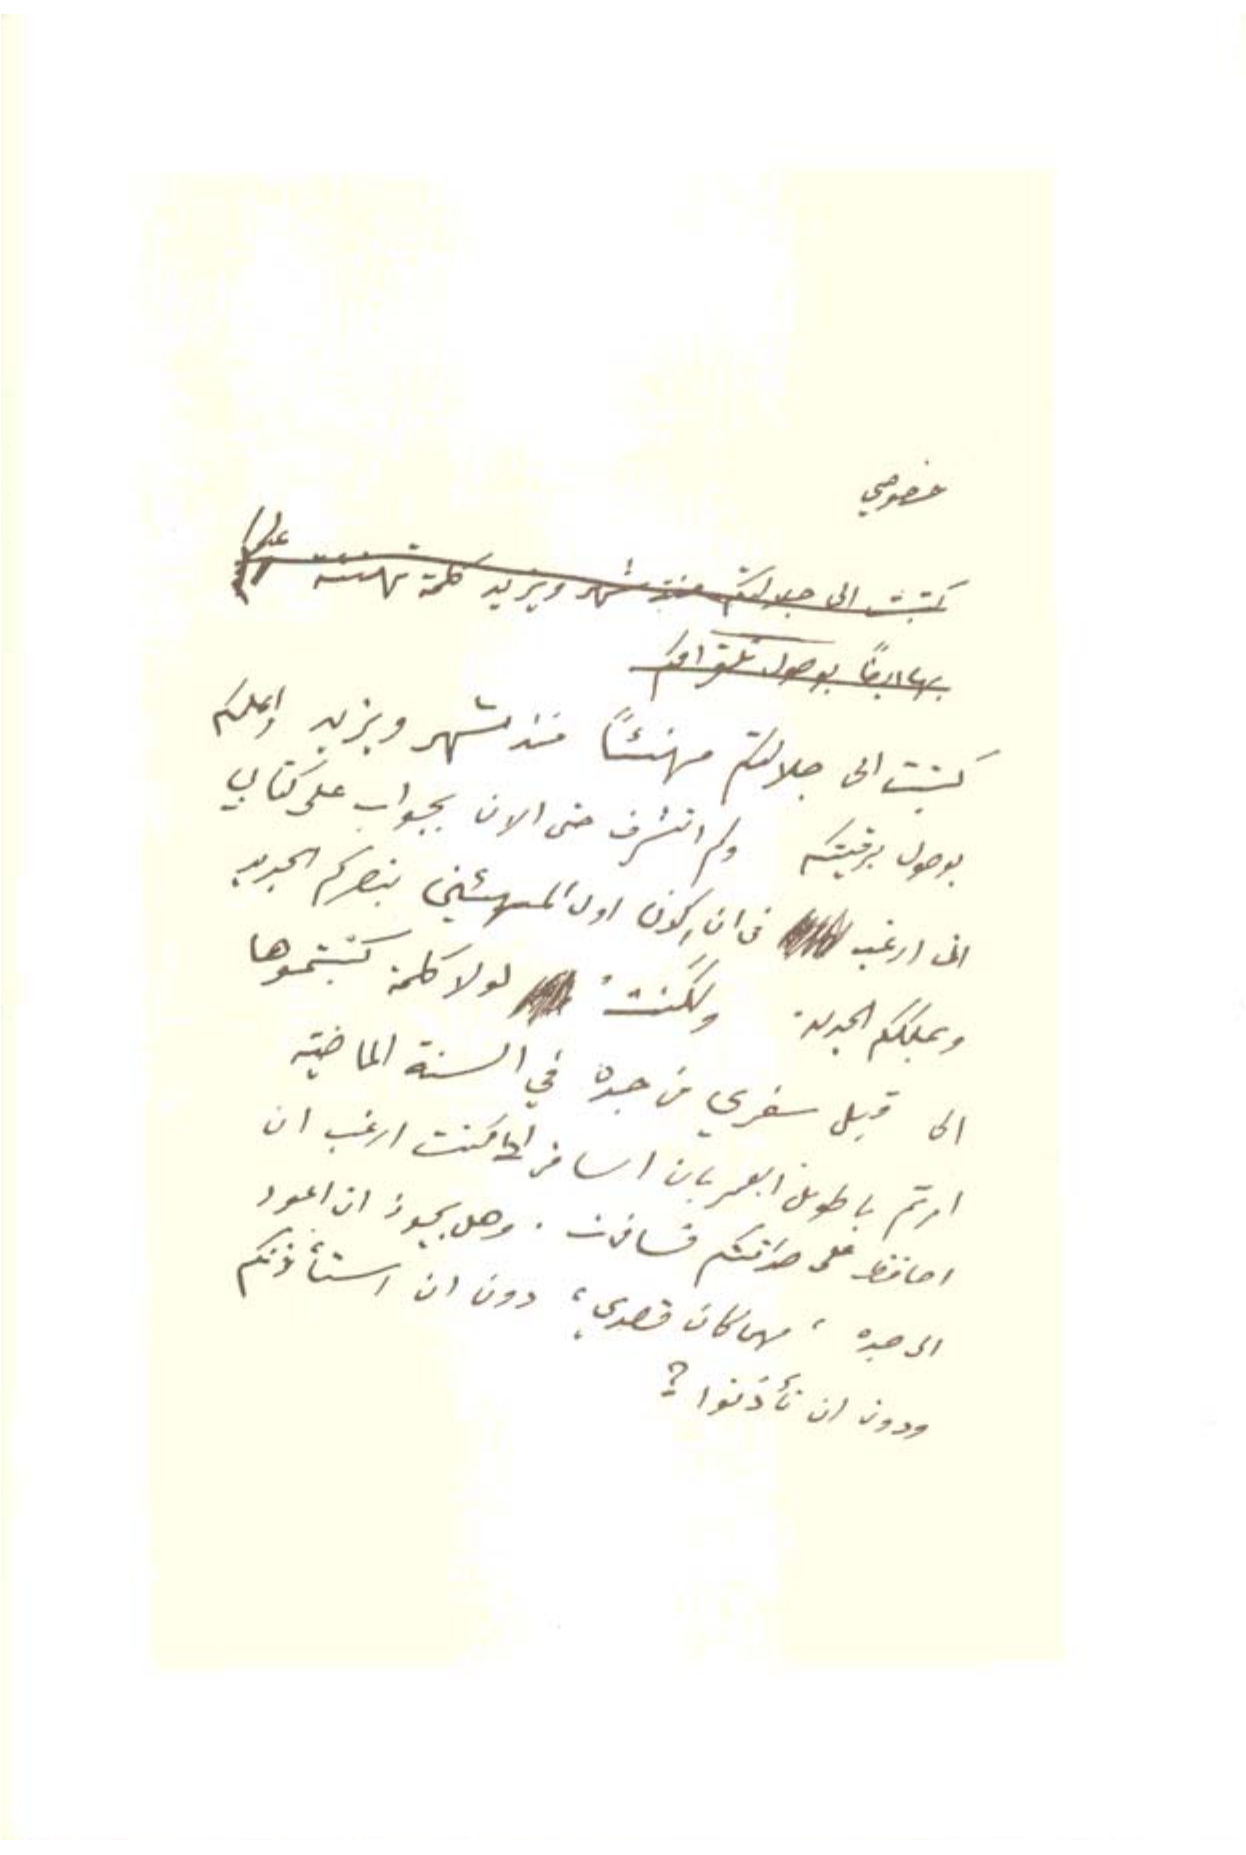 خصوصي
كتبت الى جلالتكم منذ شهر ويزيد كلمة تهنئة
بها ايضاً بوصول تلغرافكم
كتبت الى جلالتكم مهنئاً منذ شهر ويزيد واعلمكم
بوصول برقيتكم ولم اتشرف حتى الان بجواب على كتابي
انى ارغب فى ان اكون اول المهنئين بنصركم الجديد
وبملككم الجديد. ولكنتُ لولا كلمة كتبتموها
الى قبل سفري من جدة في السنة الماضية
امرتم يا طويل العمر بان اسافر اذا كنت ارغب ان
احافظ على صداقتكم فسافرت . وهل يجوز ان اعود
الى جده ، مهما كان قصدي ، دون ان استأذنكم
ودون ان تأذنوا ؟